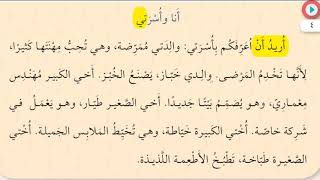 أَنا وأُسْرَتي
٤
أُريدُ أَنْ أُعَرِّفَكُم بِأُسْرَتي: والِدَتي مُمَرِّضَة، وهي تُحِبُّ مِهْنَتَها كَثيرًا،
لِأَنَّها تَخْدِمُ المَرْضى. والِدي خَبّاز، يَصْنَعُ الخُبْزَ. أَخي الكَبير مُهَنْدِس
مِعْمارِيّ، وهو يُصَمِّمُ بَيْتًا جَديدًا. أَخي الصَّغير طَيّار، وهو يَعْمَلُ في
شَرِكة خاصّة. أُخْتي الكَبيرة خَيّاطة، وهي تُخَيِّطُ المَلابِسَ الجَميلة. أُخْتي
الصَّغيرة طَبّاخة، تَطْبُخُ الأَطْعِمةَ اللَّذيذة.